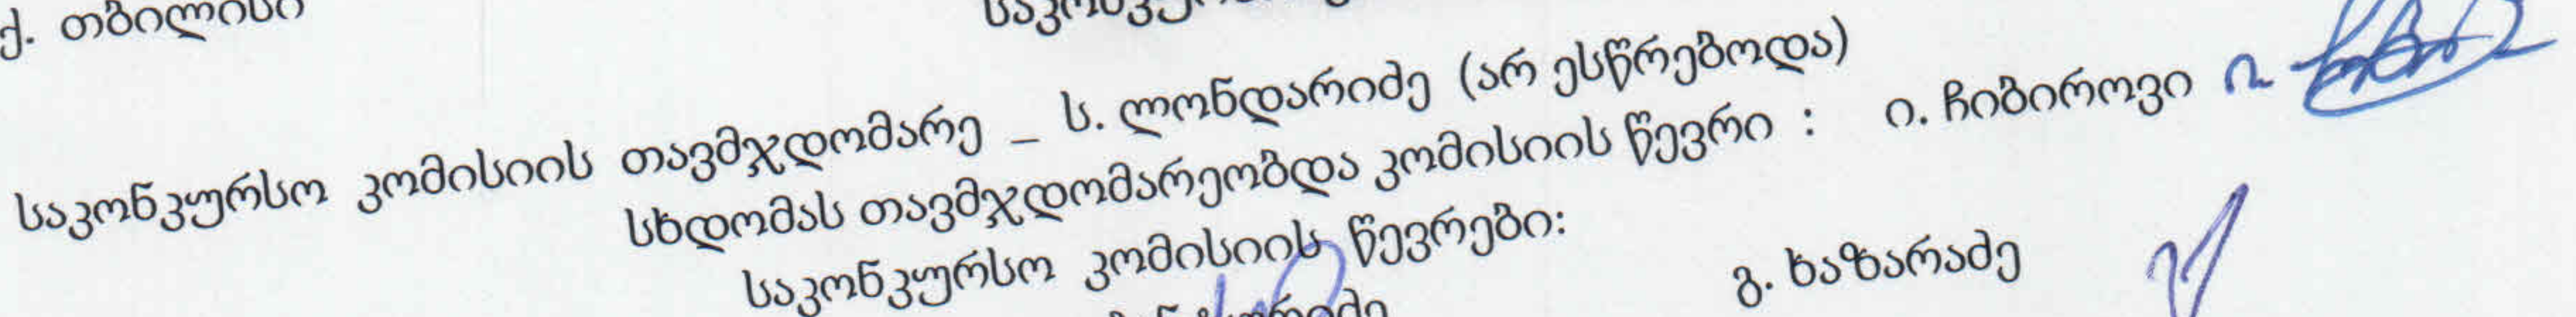 ქ. თბილისი
საკონკურსო კომისიის თავმჯდომარე _ ს. ლონდარიძე (არ ესწრებოდა)
სხდომას თავმჯდომარეობდა კომისიის წევრი : ი. ჩიბიროვი
საკონკურსო კომისიის წევრები:
გ. ხაზარაძე